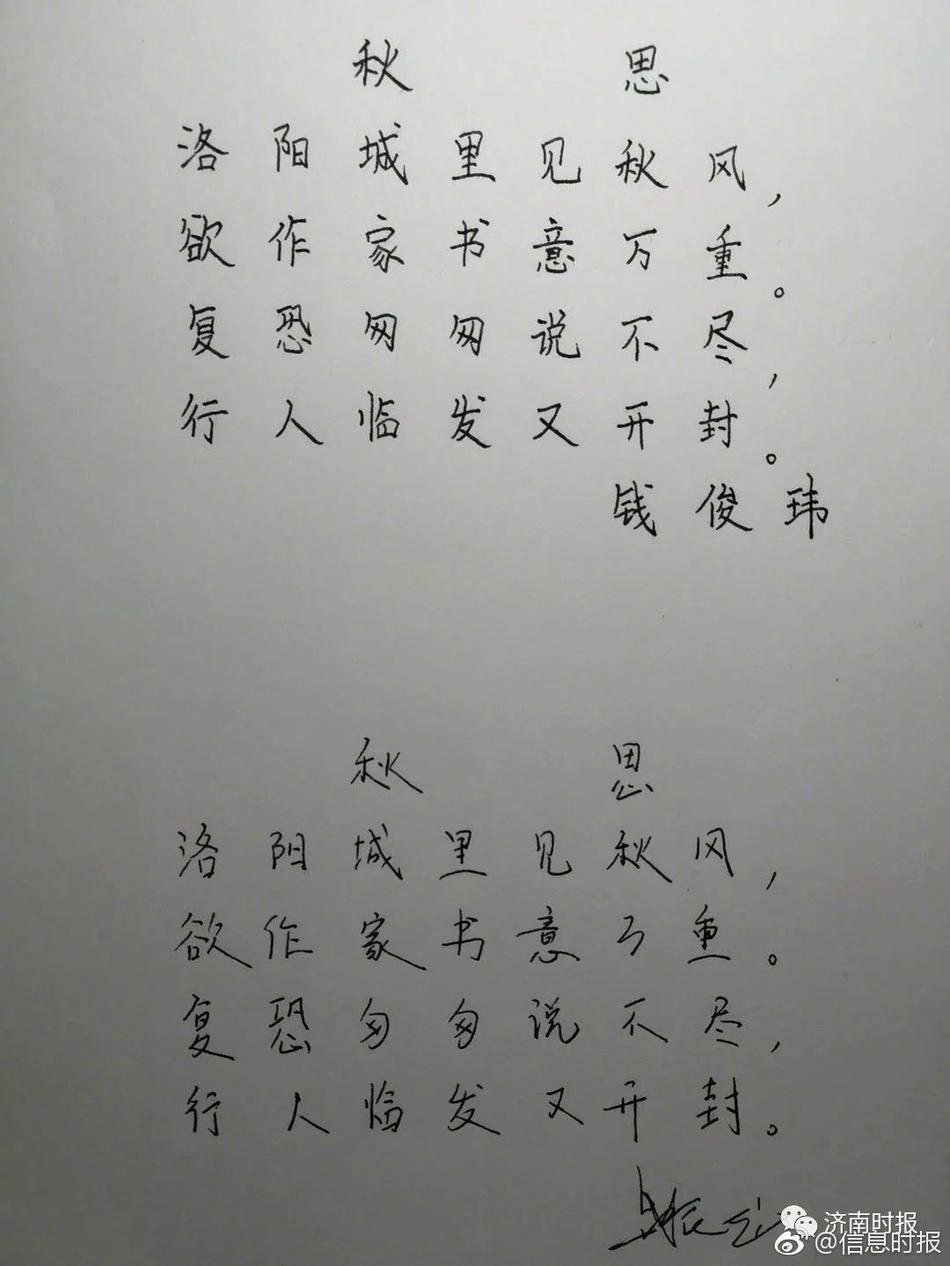 秋思
洛阳城里见秋风，
欲作家书意万重。
复恐匆匆说不尽，
行人临发又开封。
钱俊玮
秋思
洛阳城里见秋风，
欲作家书意万重。
复恐匆匆说不尽，
行人临发又开封。
济南时报
@信息时报